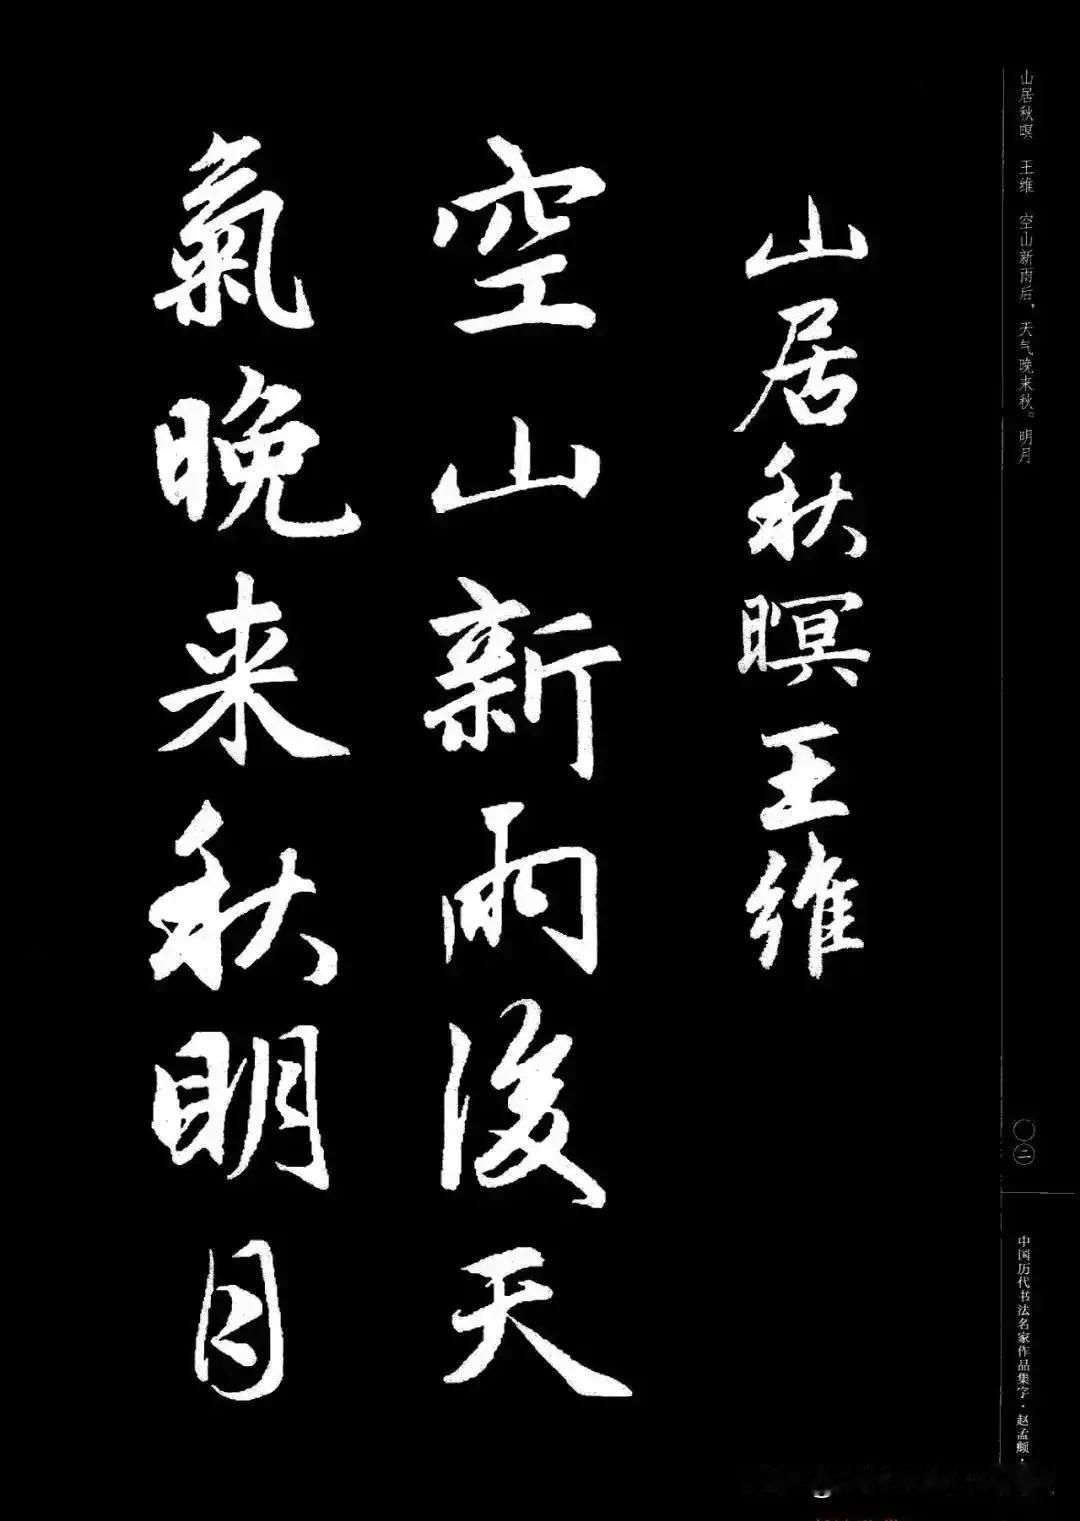 山居秋暝 王维 空山新雨后，天气晚来秋。明月
山居秋暝王維
空山新雨後天
氣晚来秋明月
〇二
中国历代书法名家作品集字·赵孟頫·